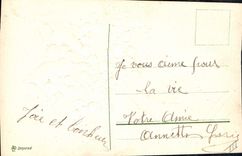 Je vous aime pour
la vie
Votre Amie
Annette
Joie et bonheur
Déposé